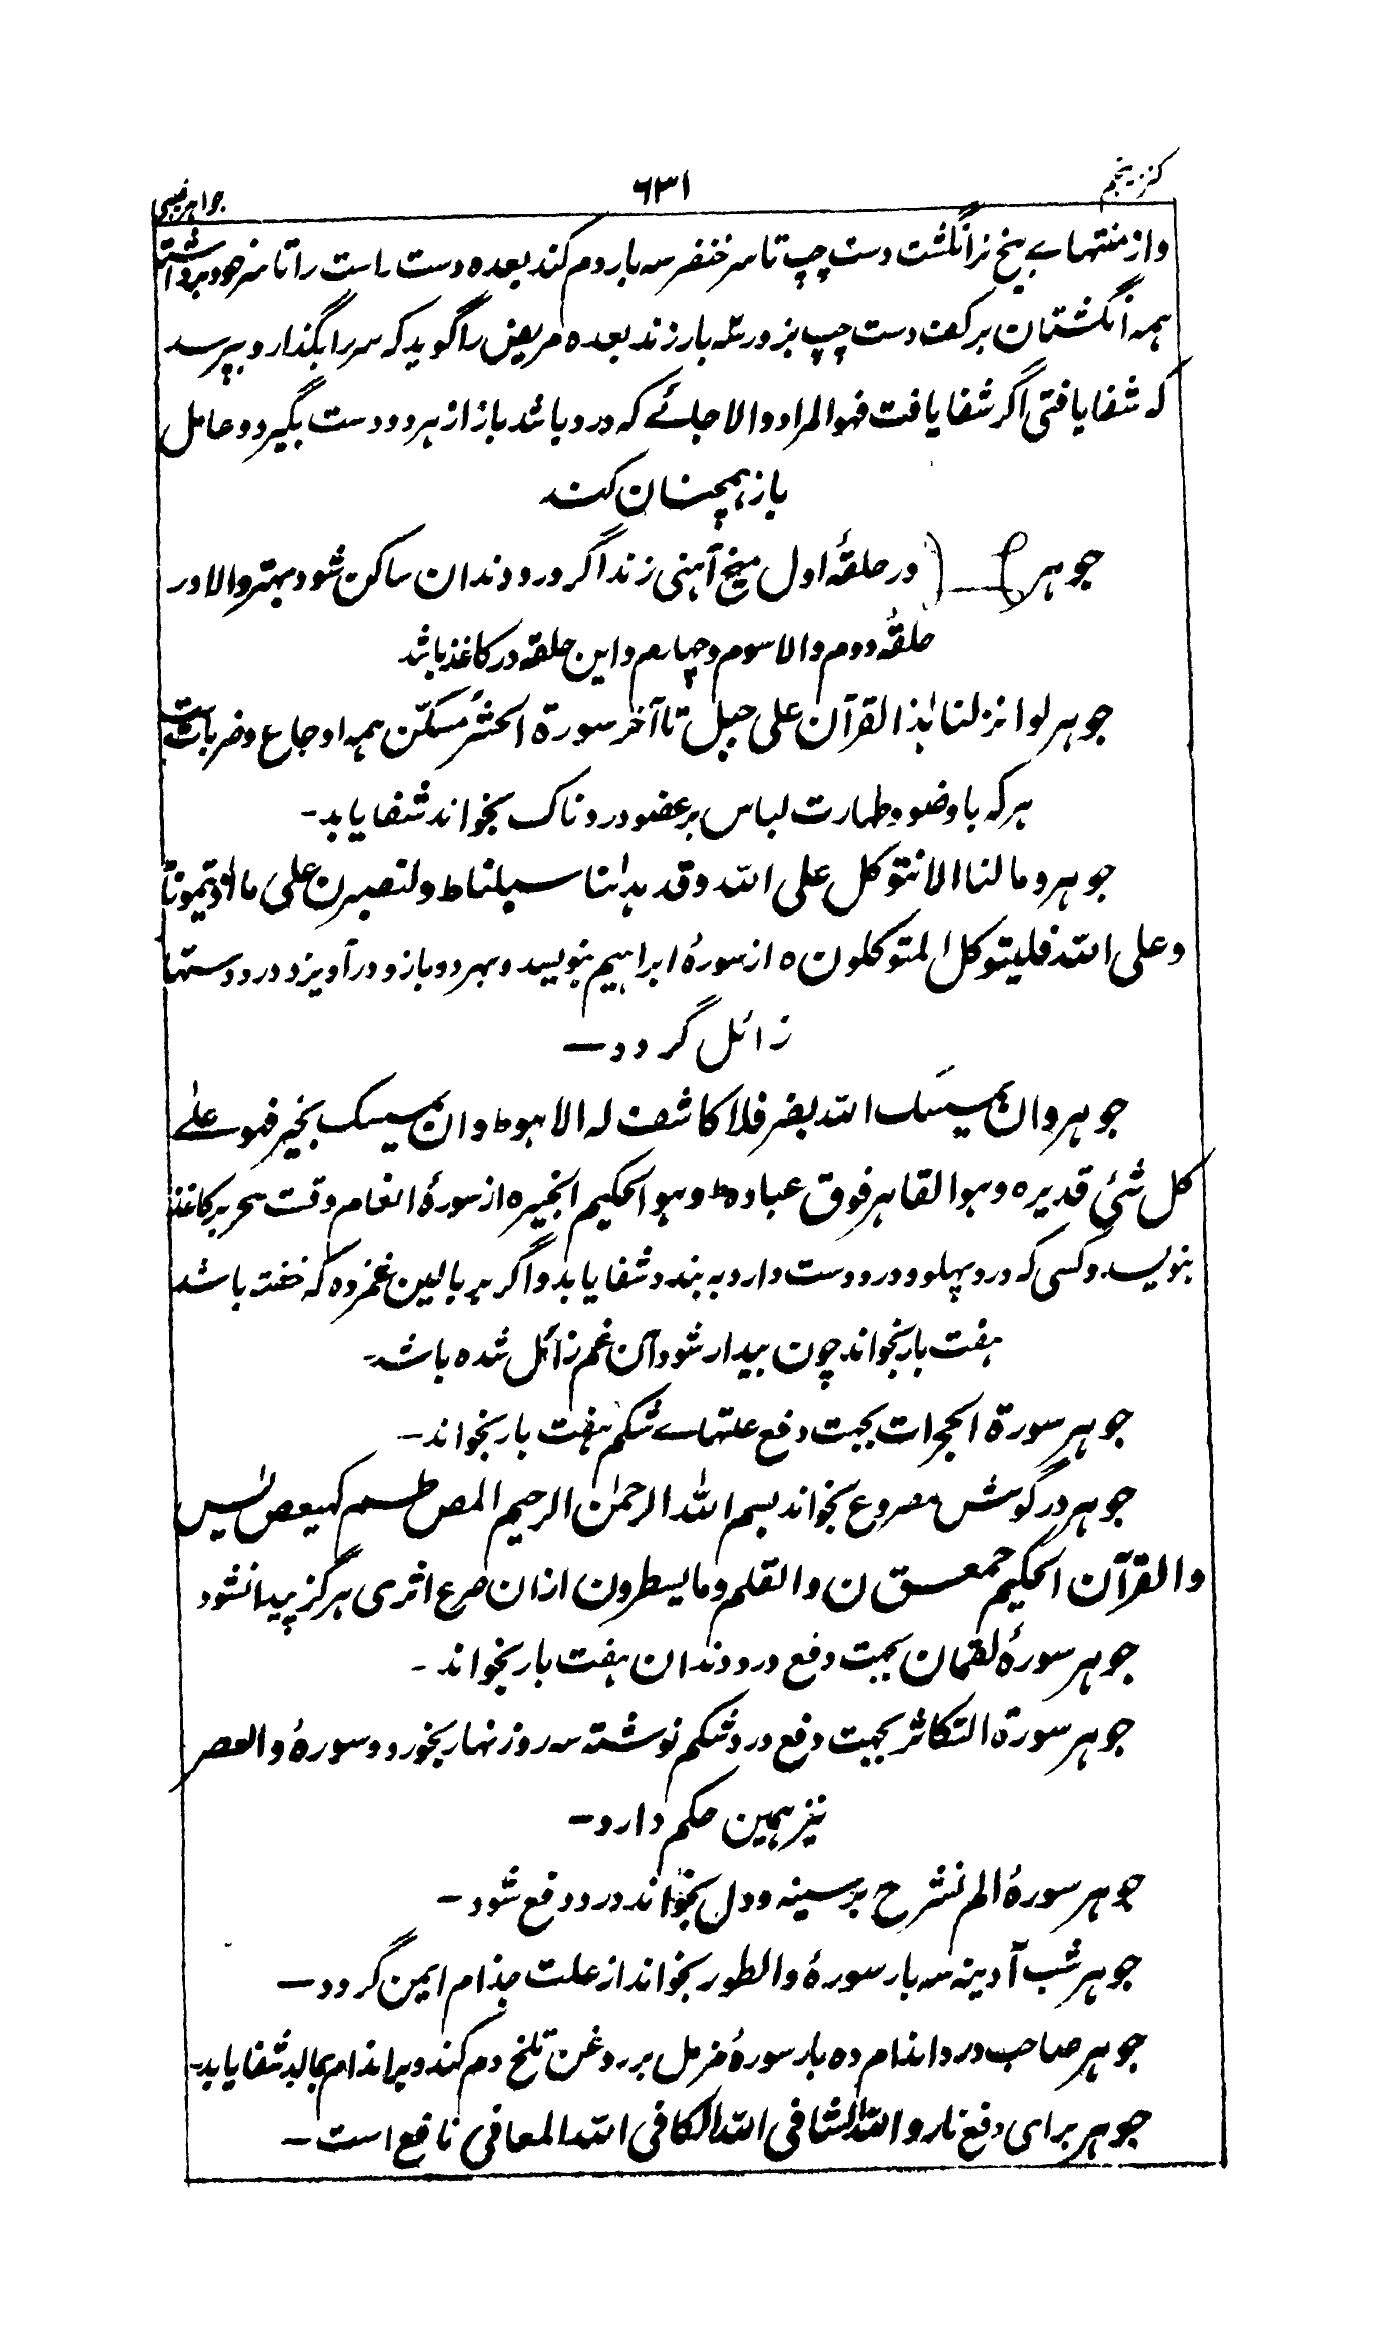 کنز پنجم
۶۳۱
جواہر غیبی
واز منتہاے بیخ نر انگشت دست چپ تا سر خنصر سہ بار دم کند بعدہ دست راست را تا سر خود برداشتہ
ہمہ انگشتان بر کف دست چپ بزور سہ بار زند بعدہ مریض را گوید کہ سر را بگذار و بپرسد
کہ شفا یافتی اگر شفا یافت فہو المراد والا جائے کہ درد باشد باز از ہر دو دست بگیرد و عامل
باز ہمچنان کند
جوہر در حلقۂ اول میخ آہنی زند اگر درد دندان ساکن شود بہتر والا در
حلقۂ دوم والا سوم و چہارم و این حلقہ در کاغذ باشد
جوہر لو انزلنا ہٰذا القرآن علی جبل تا آخر سورۃ الحشر مسکّن ہمہ اوجاع و ضربات است
ہر کہ با وضو و طہارت لباس بر عضو دردناک بخواند شفا یابد۔
جوہر وما لنا الا نتوکل علی اللہ وقد ہدٰنا سبلنا ط ولنصبرن علی ما اٰذیتمونا
وعلی اللہ فلیتوکل المتوکلون ہ از سورۂ ابراہیم بنویسد و بہر دو بازو در آویزد درد دستہا
زائل گردد—
جوہر وان یمسسک اللہ بضر فلا کاشف لہ الا ہو ط وان یمسسک بخیر فہو علےٰ
کل شئی قدیر ہ وہو القاہر فوق عبادہ ط وہو الحکیم الخبیر ہ از سورۂ انعام وقت سحر بر کاغذ
بنویسد و کسی کہ درد پہلو و درد دست دارد بہ بندد شفا یابد و اگر بر بالین غمزدہ کہ خفتہ باشد
ہفت بار بخواند چون بیدار شود آن غم زائل شدہ باشد۔
جوہر سورۃ الحجرات بجہت دفع علتہاے شکم ہفت بار بخواند۔
جوہر در گوش مصروع بخواند بسم اللہ الرحمٰن الرحیم المص طسم کہیعص یٰسین
والقرآن الحکیم حمعسق ن والقلم وما یسطرون ازان صرع اثری ہرگز پیدا نشود
جوہر سورۂ لقمان بجہت دفع درد دندان ہفت بار بخواند۔
جوہر سورۃ التکاثر بجہت دفع درد شکم نوشتہ سہ روز نہار بخورد و سورۂ والعصر
نیز ہمین حکم دارد—
جوہر سورۂ الم نشرح بر سینہ و دل بخواند درد دفع شود—
جوہر شب آدینہ سہ بار سورۂ والطور بخواند از علت جذام ایمن گردد—
جوہر صاحب درد اندام دہ بار سورۂ مزمل بر روغن تلخ دم کند و بر اندام بمالد شفا یابد۔
جوہر برای دفع نارو اللہ الشافی اللہ الکافی اللہ المعافی نافع است—